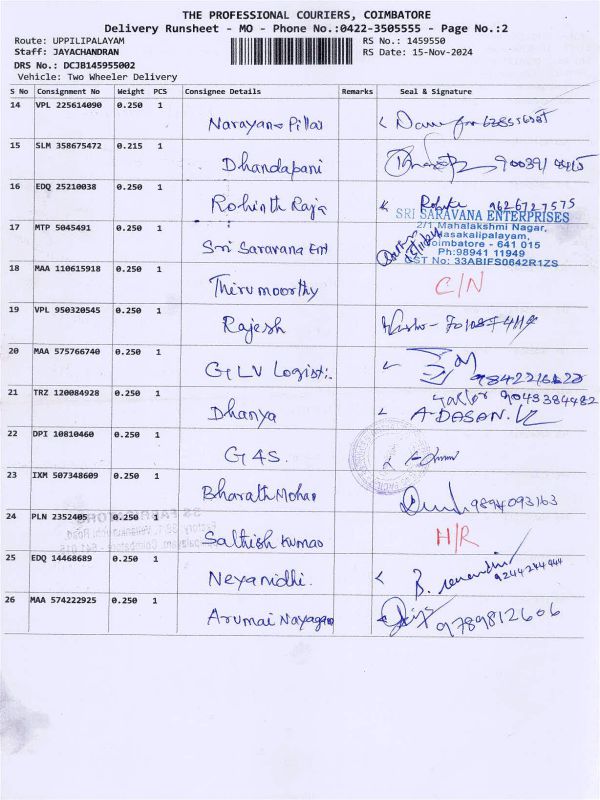 THE PROFESSIONAL COURIERS, COIMBATORE
Delivery Runsheet - MO - Phone No.:0422-3505555 - Page No.:2
Route: UPPILIPALAYAM
RS No.: 1459550
Staff: JAYACHANDRAN
RS Date: 15-Nov-2024
DRS No.: DCJB145955002
Vehicle: Two Wheeler Delivery
S No Consignment No Weight PCS Consignee Details Remarks Seal & Signature
14 VPL 225614090 0.250 1
Narayana Pillai
15 SLM 358675472 0.215 1
Dhandapani
16 EDQ 25210038 0.250 1
Rohinth Raja 9626727575
SRI SARAVANA ENTERPRISES
2/1 Mahalakshmi Nagar,
Masakalipalayam,
Coimbatore - 641 015
Ph:98941 11949
GST No: 33ABIFS0642R1ZS
17 MTP 5045491 0.250 1
Sri Saravana Ent
18 MAA 110615918 0.250 1
Thirumoorthy C/N
19 VPL 950320545 0.250 1
Rajesh
20 MAA 575766740 0.250 1
GLV Logisti
21 TRZ 120084928 0.250 1
9043384482
Dhanya A-DASAN.
22 DPI 10810460 0.250 1
G4S.
23 IXM 507348609 0.250 1
Bharath Mohan 9894093163
24 PLN 2352405 0.250 1
Sathish Kumar H/R
25 EDQ 14468689 0.250 1
Neyanidhi. 9244244944
26 MAA 574222925 0.250 1
Arumai Nayagam 9789812606